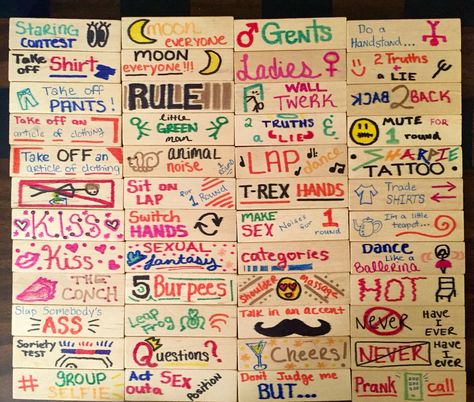 Staring
CONTEST
Take
off Shirt
Take off
PANTS!
Take off an
article of clothing
Take OFF an
article of clothing
KISS
Kiss
THE
CONCH
Slap Somebody's
ASS
Soriety
TEST
# GROUP
SELFIE
MOON
everyone
MOON
everyone!!!
RULE
little
GREEN
man
ANIMAL
noise
Sit on
LAP
for 1
Round
Switch
HANDS
SEXUAL
fantasy
5 Burpees
Leap
Frog
Questions?
Act
out a SEX
Position
Gents
Ladies
WALL
TWERK
2 TRUTHS
& a LIE
LAP dance
T-REX HANDS
MAKE
SEX Noises for 1
round
categories
Shoulder Massage
Talk in an accent
Cheers!
Dont Judge me
BUT...
Do a
Handstand...
2 Truths
+ a LIE
BACK 2 BACK
MUTE for
1 round
SHARPIE
TATTOO
Trade
SHIRTS
I'm a little
teapot...
Dance
Like a
Ballerina
HOT
Never HAVE I
EVER
NEVER HAVE I
EVER
Prank call